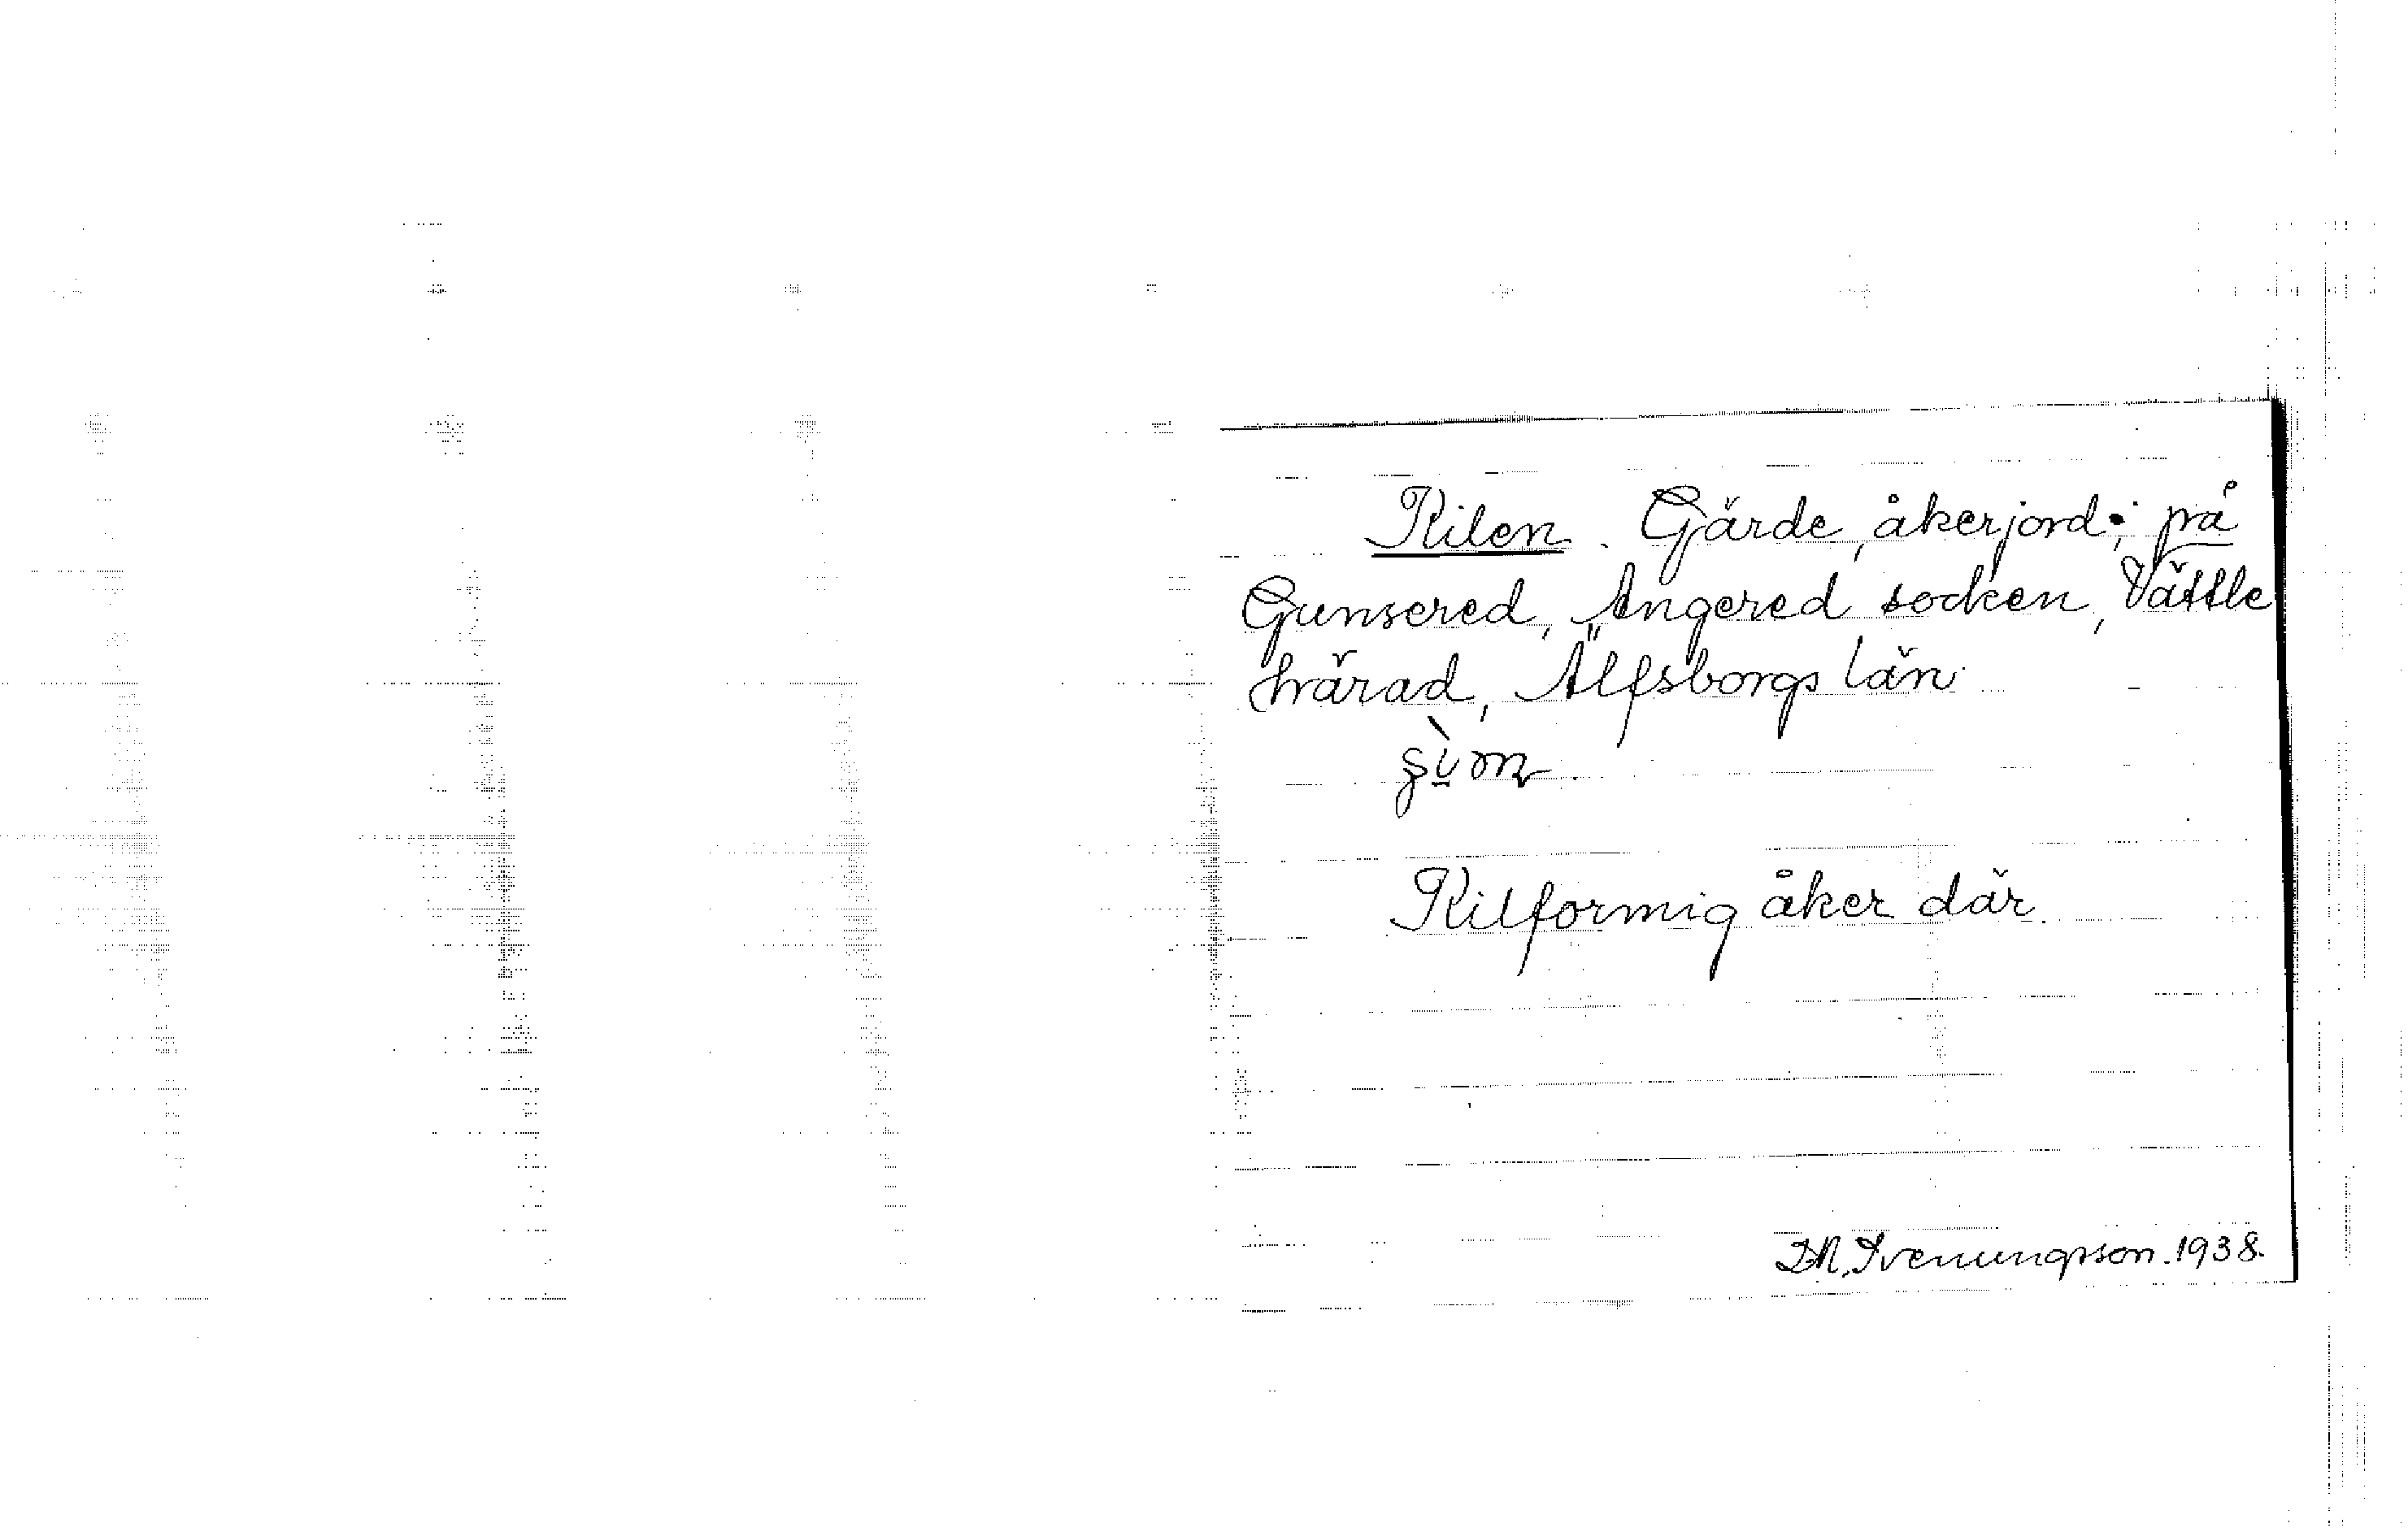 Kilen. Gärde, åkerjord; på
Gunsered, Angered socken, Vättle
härad, Älfsborgs län.
Kilformig åker där.
D.N. Svenungsson. 1938.